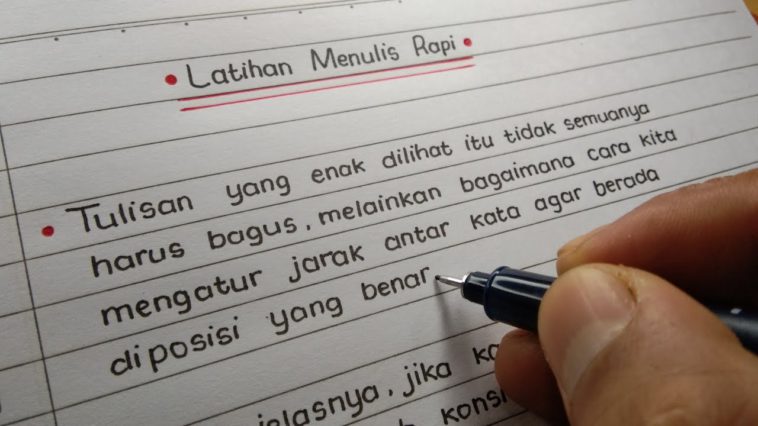 Latihan Menulis Rapi
Tulisan yang enak dilihat itu tidak semuanya
harus bagus, melainkan bagaimana cara kita
mengatur jarak antar kata agar berada
diposisi yang benar.
jelasnya, jika